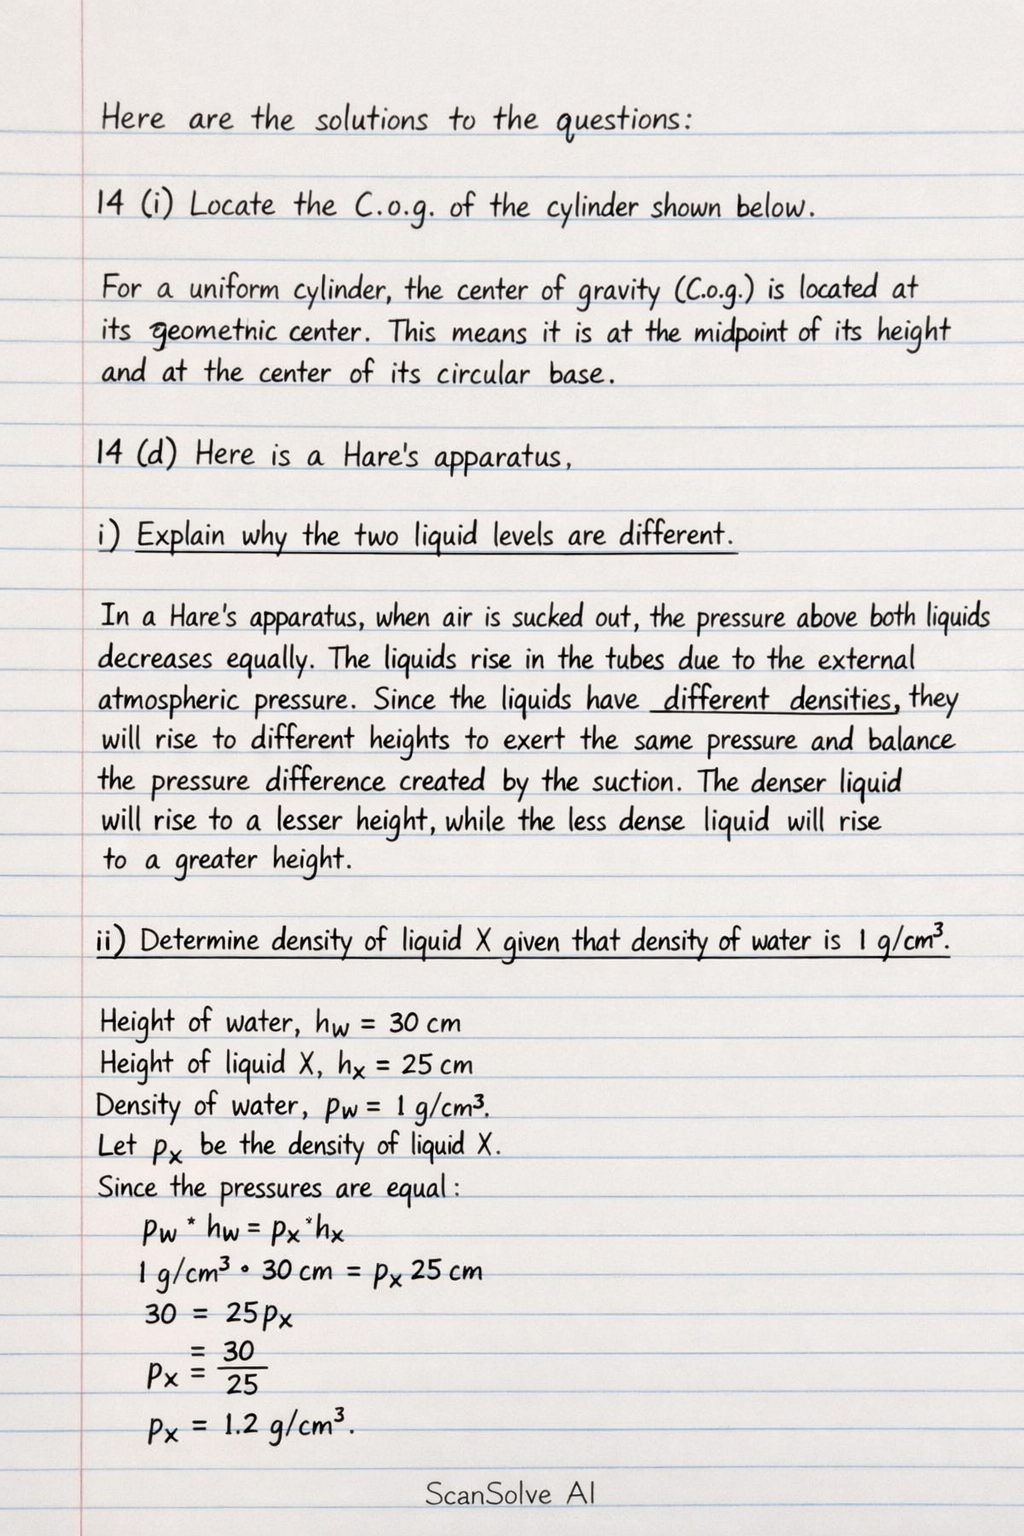 Here are the solutions to the questions:
14 (i) Locate the C.o.g. of the cylinder shown below.
For a uniform cylinder, the center of gravity (C.o.g.) is located at
its geometric center. This means it is at the midpoint of its height
and at the center of its circular base.
14 (d) Here is a Hare's apparatus,
i) Explain why the two liquid levels are different.
In a Hare's apparatus, when air is sucked out, the pressure above both liquids
decreases equally. The liquids rise in the tubes due to the external
atmospheric pressure. Since the liquids have different densities, they
will rise to different heights to exert the same pressure and balance
the pressure difference created by the suction. The denser liquid
will rise to a lesser height, while the less dense liquid will rise
to a greater height.
ii) Determine density of liquid X given that density of water is 1 g/cm³.
Height of water, hw = 30 cm
Height of liquid X, hx = 25 cm
Density of water, pw = 1 g/cm³.
Let px be the density of liquid X.
Since the pressures are equal:
pw * hw = px * hx
1 g/cm³ • 30 cm = px 25 cm
30 = 25px
= 30
px = 25
px = 1.2 g/cm³.
ScanSolve AI